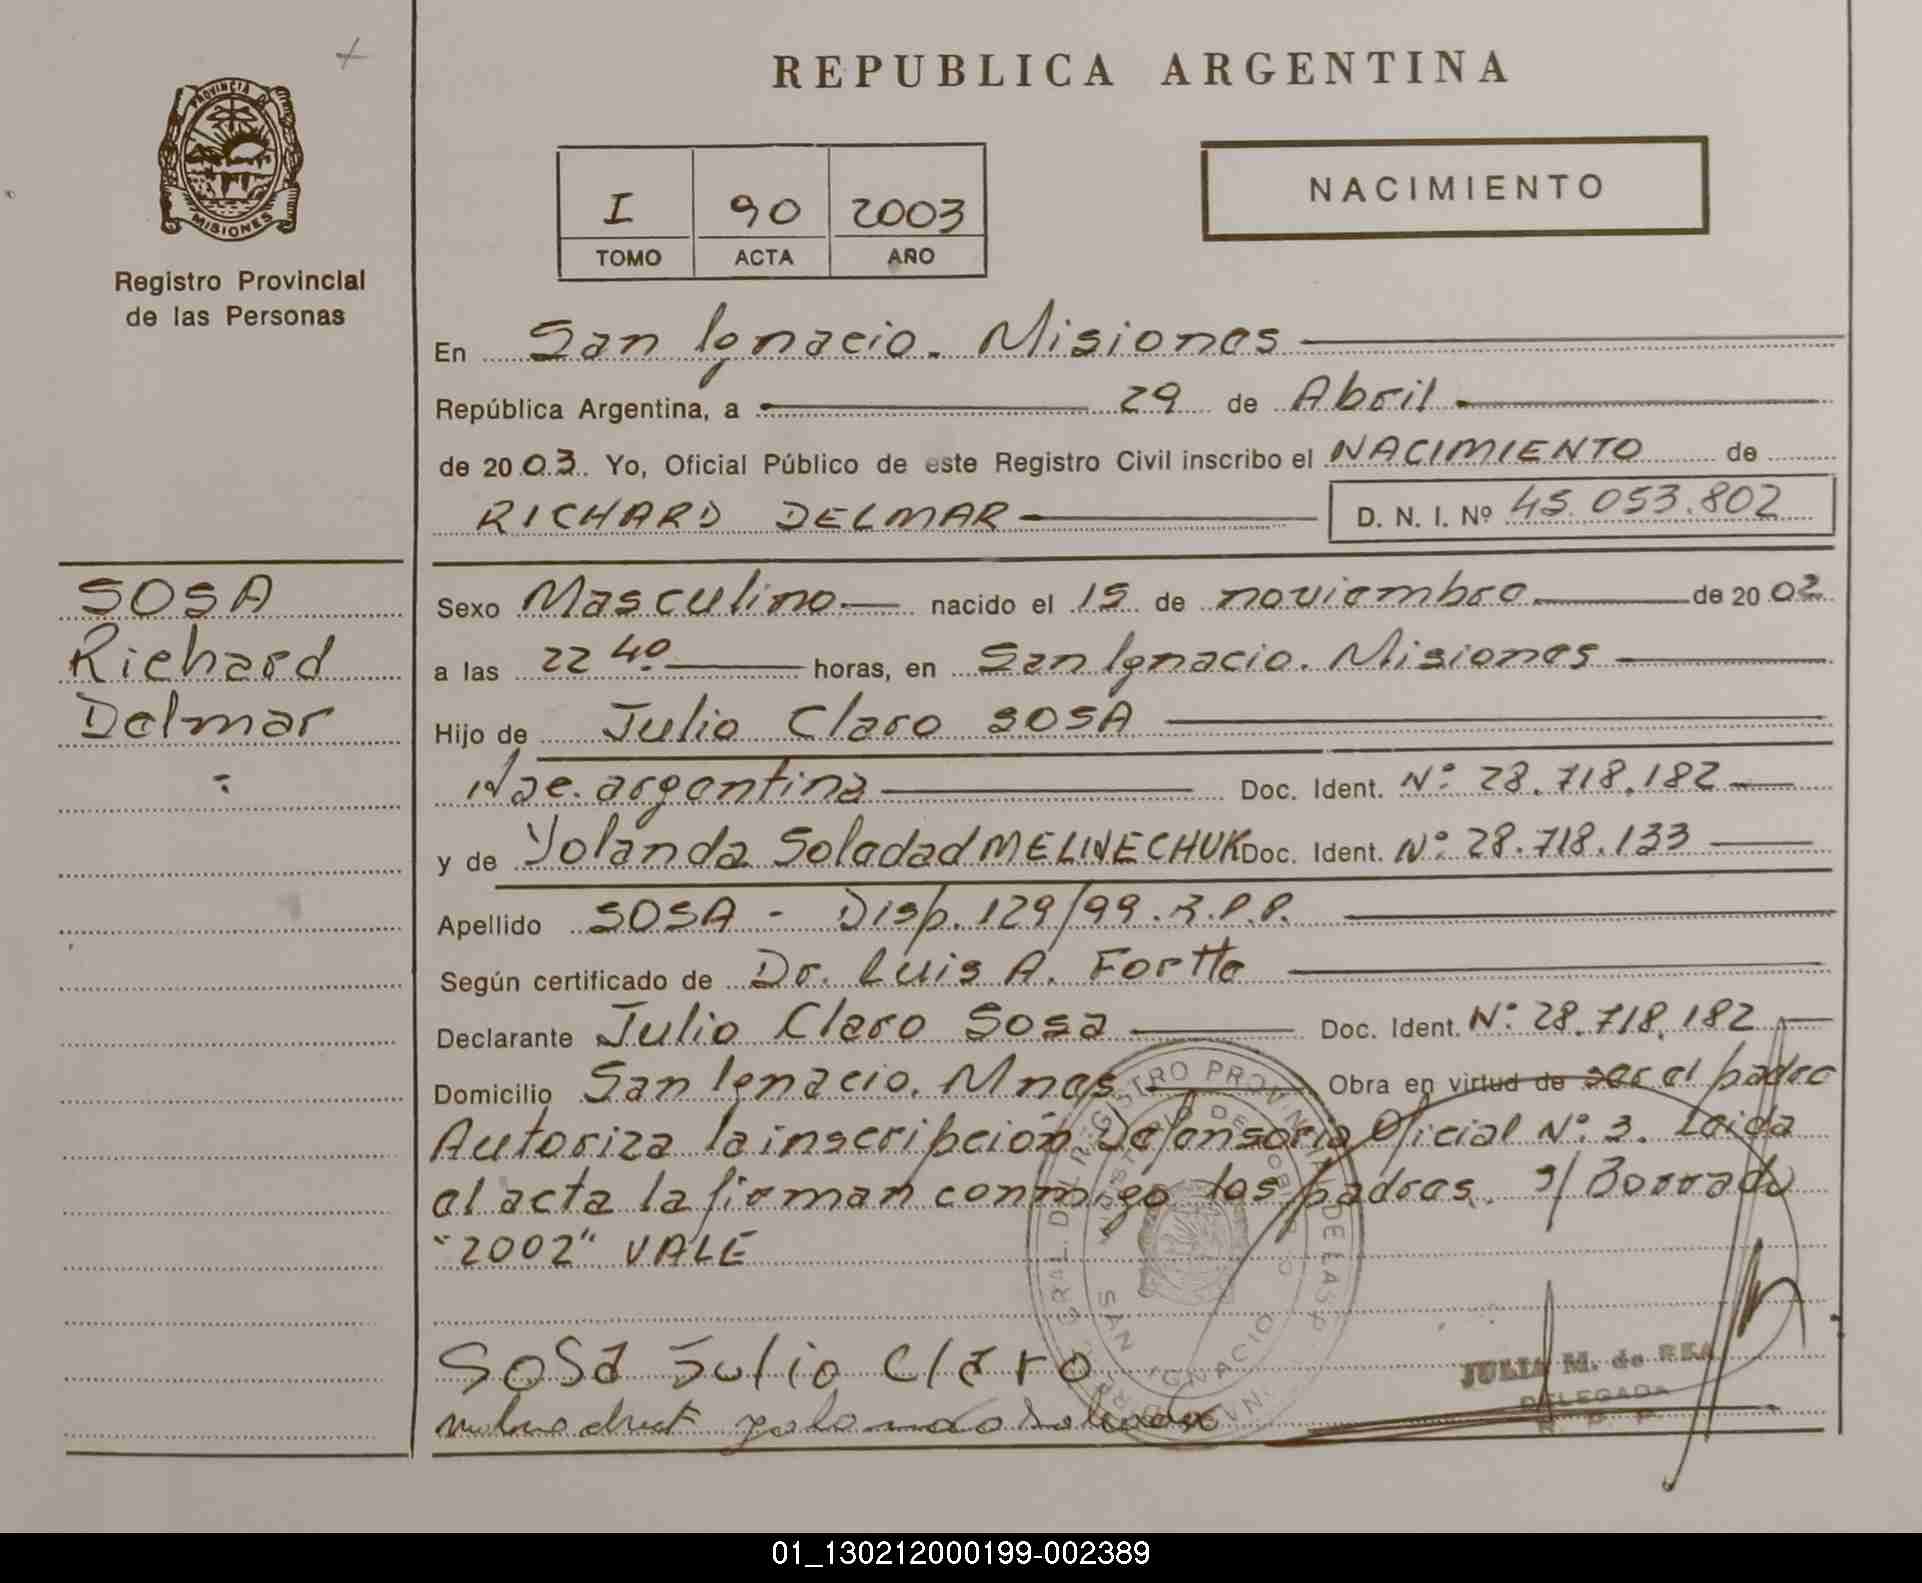 REPUBLICA ARGENTINA
PROVINCIA DE
MISIONES
Registro Provincial
de las Personas
I 90 2003
TOMO ACTA AÑO
NACIMIENTO
En San Ignacio. Misiones
República Argentina, a 29 de Abril
de 2003. Yo, Oficial Público de este Registro Civil inscribo el NACIMIENTO de
RICHARD DELMAR D. N. I. Nº 45.053.802
SOSA
Richard
Delmar
Sexo Masculino nacido el 15 de noviembre de 2002
a las 22 40 horas, en San Ignacio. Misiones
Hijo de Julio Claro SOSA
Nac. argentina Doc. Ident. Nº 28.718.182
y de Yolanda Soledad MELNECHUK Doc. Ident. Nº 28.718.133
Apellido SOSA - Disp. 129/99. R.P.P.
Según certificado de Dr. Luis A.
Declarante Julio Claro Sosa Doc. Ident. Nº 28.718.182
Domicilio San Ignacio. Mnes Obra en virtud de ser el padre
Autoriza la inscripción Defensoria Oficial Nº 3. Leida
el acta la firman conmigo los padres. s/ Borrado
"2002" VALE
SOSA Julio Claro
JULIA M. de REA
DELEGADA
R. P. P.
SAN IGNACIO
01_130212000199-002389